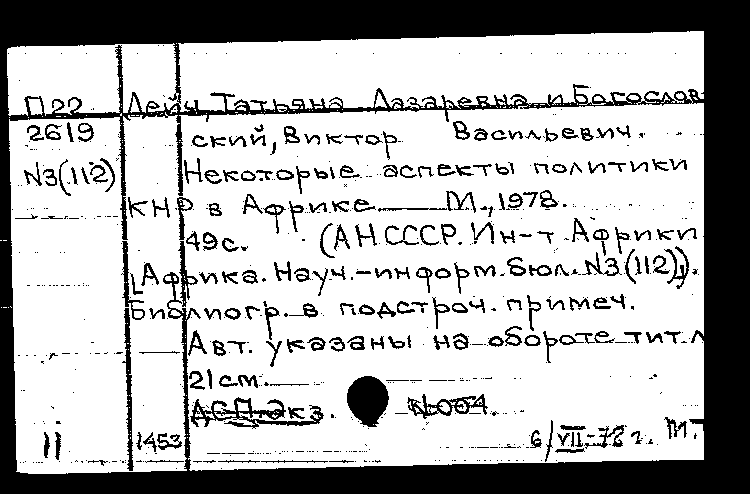 П22 Дейч, Татьяна Лазаревна и Богослов-
2619 ский, Виктор Васильевич.
N3(112) Некоторые аспекты политики
КНР в Африке. М., 1978.
49с. (АН СССР. Ин-т Африки
Африка. Науч.-информ. бюл. N3(112)).
Библиогр. в подстроч. примеч.
Авт. указаны на обороте тит. л
21см.
ДСП. Экз. №004.
11 1453 6/VII-78 г. М.